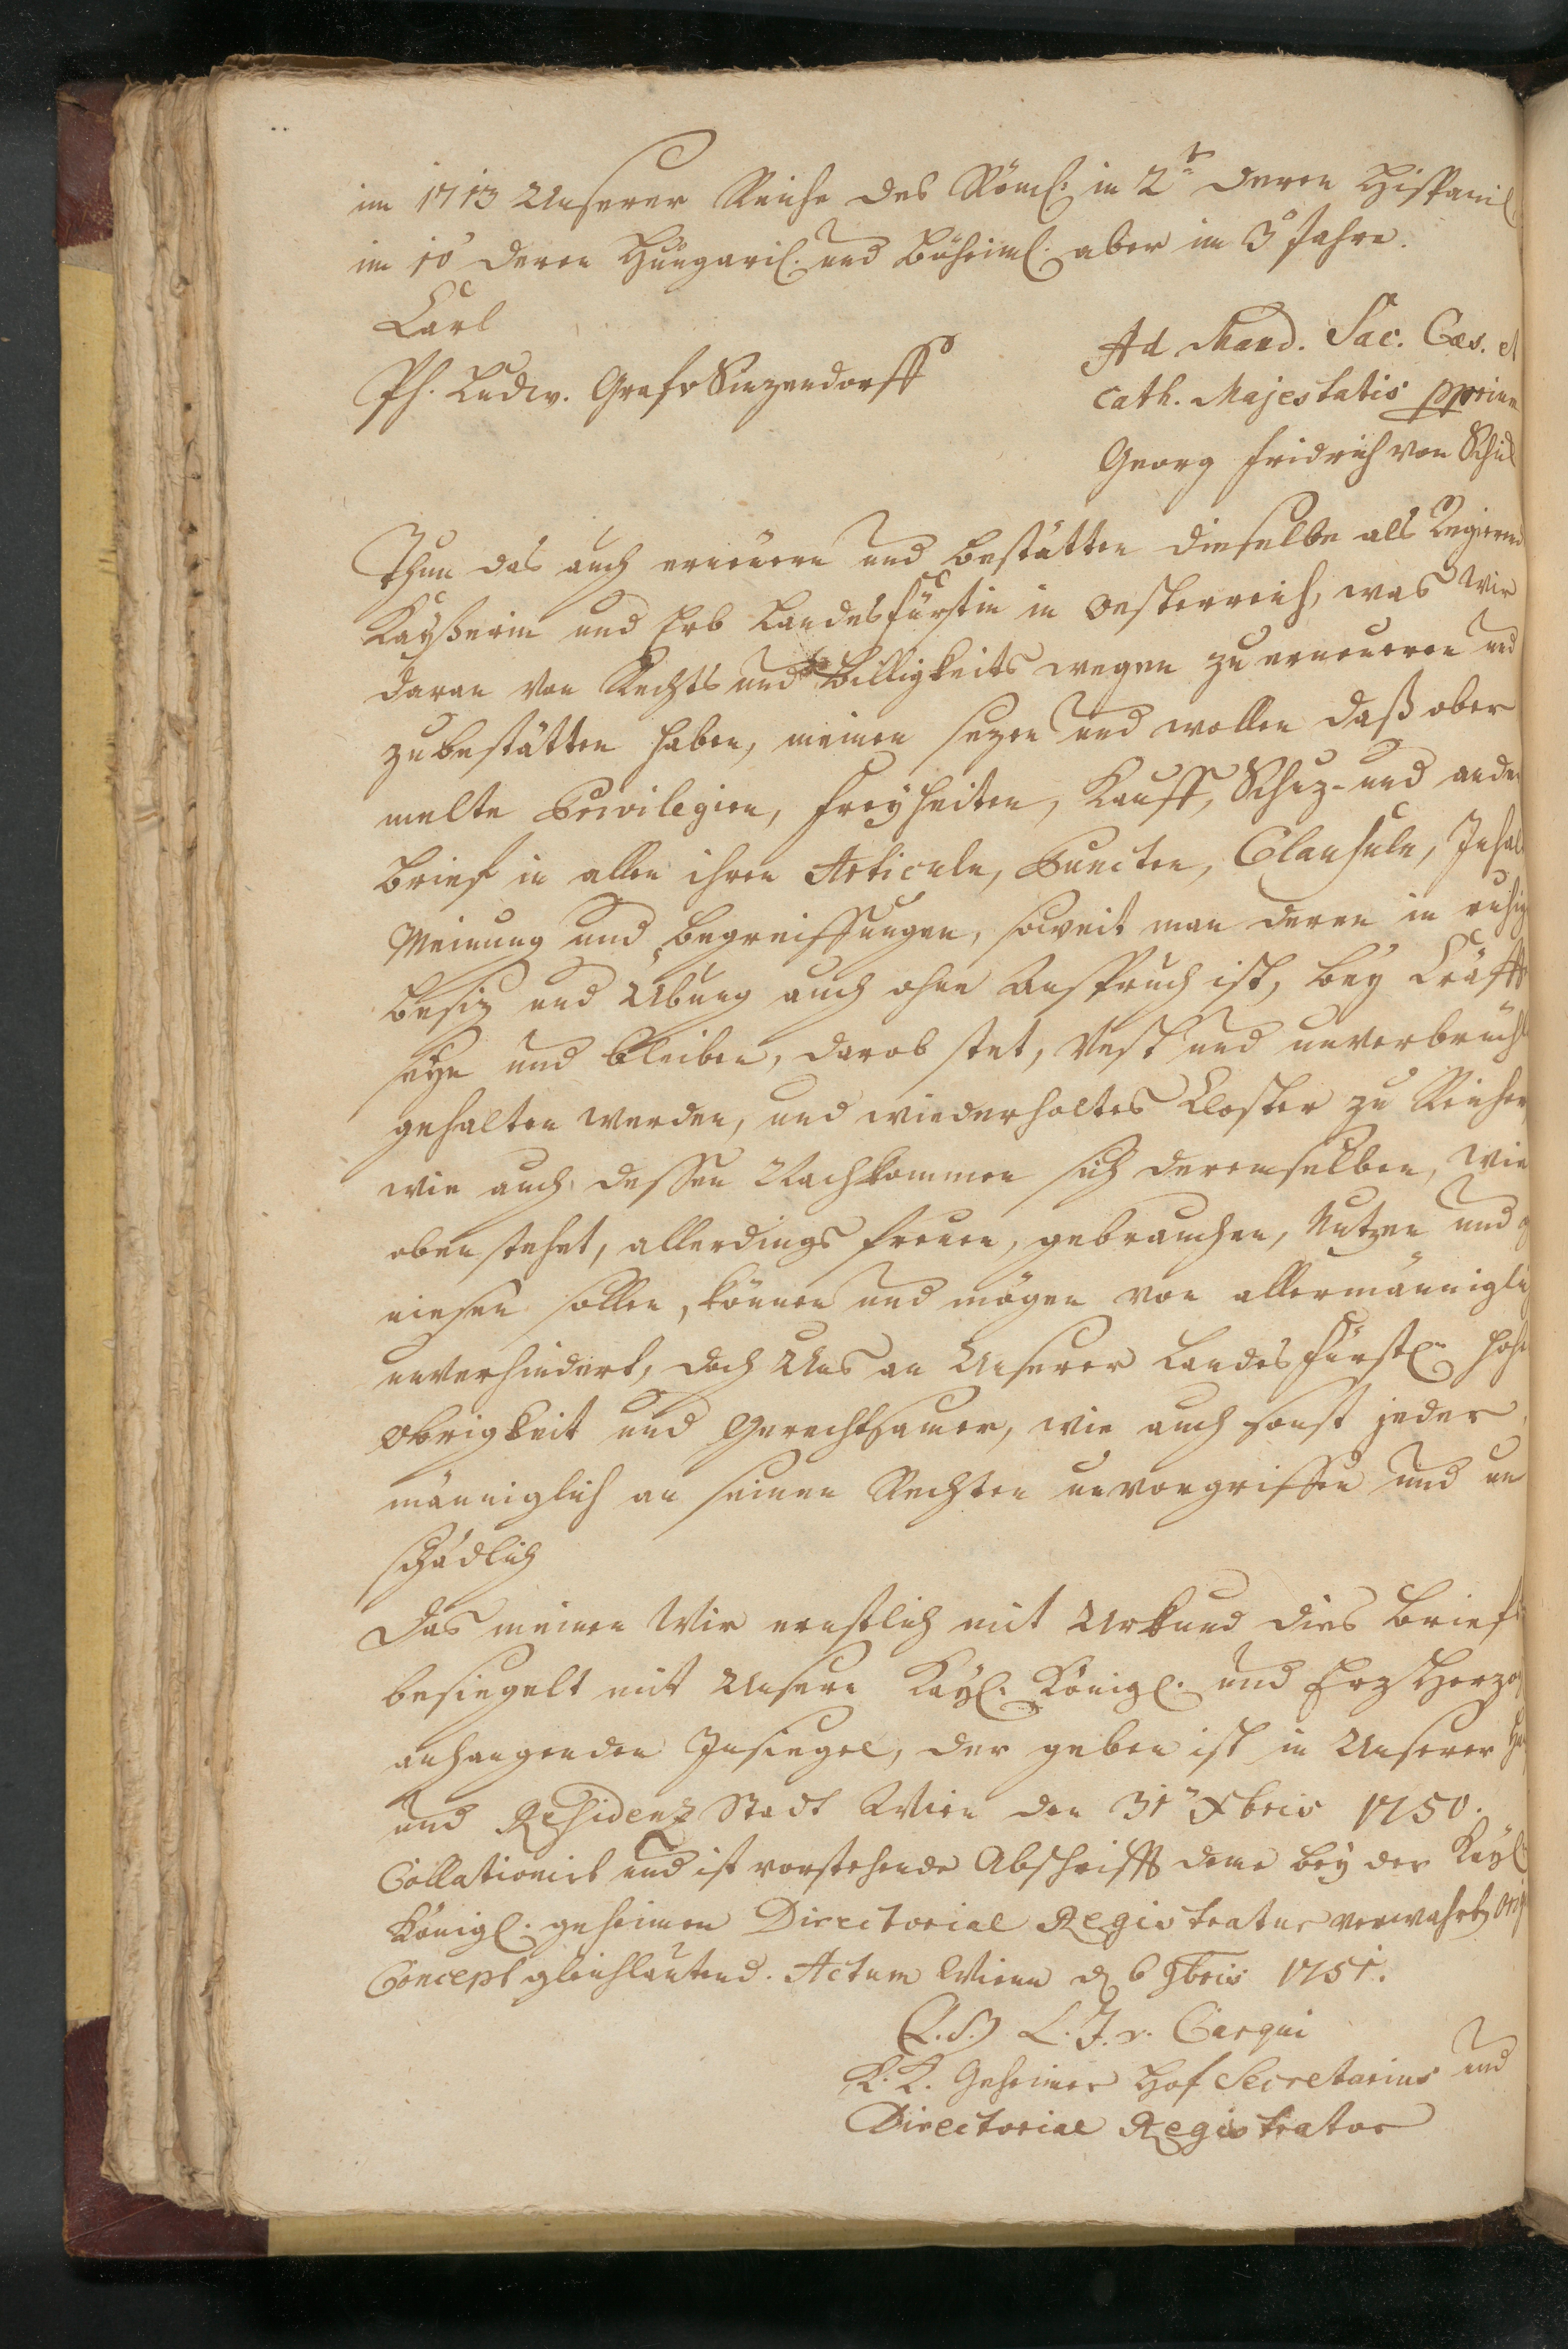 im 1713 Unserer Reiche des Röml: in 2tn deren Hispanil
im 10 deren Hungaril. und Böheiml. aber im 3ⁿ Jahre.
Carl
Ad Mand. Sac. Cæs. et
Ph. Ludw. Graf v Sinzendorff
Cath. Majestatis pprium
Georg Fridrich von Schi
Thun das auch erneuern und bestätten dieselbe als Regierend
Kayßerin und Erb Landesfürstin in Oesterreich, was Wir
daran von Rechts und Billigkeits wegen zu erneueren und
zubestätten haben, meinen sezen und wollen daß ober
melte Privilegien, Freyheiten, Kauff, Schuz- und ander
Brief in allen ihren Articuln, Puncten, Clausuln, Inhal
Meinung und Begreiffungen, soweit man deren in ruhig
Besiz und Übung auch ohne Anspruch ist, bey Cräfft
seyn und bleiben, darob stet, Vest und unverbrüchl
gehalten werden, und wiederholtes Closter zu Reichen
wie auch dessen Nachkommen sich deremselben, wie
oben stehet, allerdings freuen, gebrauchen, Nutzen und g
niesen sollen, können und mögen von allermänniglich
unverhindert, doch Uns an Unserer Landesfürstl Hohe
Obrigkeit und Gerechtsamen, wie auch sonst jeder
männiglich an seinen Rechten unvorgriffen und un
schädlich
Das meinen Wir ernstlich mit Urkund dies Briefs
besiegelt mit Unsern Kayl. Königl. und Erz Herzog
anhangenden Insiegel, der geben ist in Unserer
und Residenz Stadt Wien den 31ⁿ Xbris 1750.
Collationirt und ist vorstehende Abschrifft deme bey der Kayl
Königl. geheimen Directorial Registratur verwahrten Orig
Concept gleichlautend. Actum Wienn d 6 Fbris 1751.
(L.S.) L. J. v. Carqui
K. K. Geheimer Hof Secretarius und
Directorial Registrator